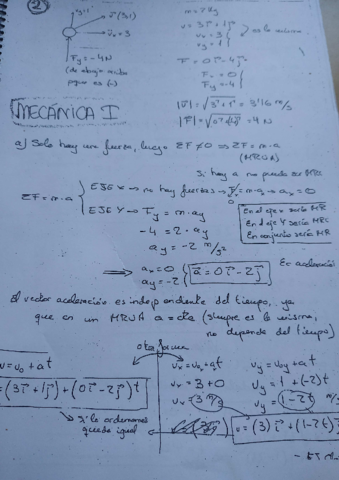 2
v⃗(3,1)
vₓ = 3
Fy = -4N
m = 2 kg
v = 3i⃗ + 1j⃗
vₓ = 3
vy = 1
es lo mismo
F = 0i⃗ - 4j⃗
Fₓ = 0
Fy = -4
|v⃗| = √3² + 1² = 3'16 m/s
= 4N
MECÁNICA I
a) Solo hay una fuerza, luego ΣF ≠ 0 ⇒ ΣF = m·a
(MRUA)
Si hay a no puede ser MRU
ΣF = m·a
EJE X → no hay fuerzas → Fₓ = m·aₓ → aₓ = 0
0
EJE Y → Fy = m·ay
-4 = 2·ay
ay = -2 m/s²
En el eje x sería MRU
En el eje Y sería
En conjunto sería
⇒ aₓ = 0
ay = -2
a⃗ = 0i⃗ - 2j⃗
Ec aceleración
El vector aceleración es independiente del tiempo, ya
que en un MRUA a = cte (siempre es la misma,
no depende del tiempo)
otra forma
v = v₀ + at
= (3i⃗ + 1j⃗) + (0i⃗ - 2j⃗)t
si lo ordenamos
queda igual
vₓ = v₀ₓ + at
vₓ = 3 + 0
vₓ = 3 m/s
vy = v₀y + at
vy = 1 + (-2)t
vy = 1 - 2t m/s
v = (3)i⃗ + (1 - 2t)